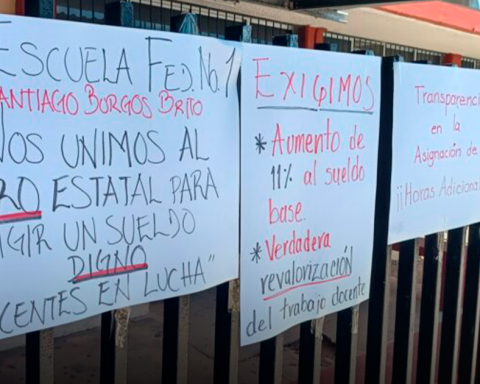 ESCUELA FED. No. 1
SANTIAGO BURGOS BRITO
NOS UNIMOS AL
RO ESTATAL PARA
IGIR UN SUELDO
DIGNO
CENTES EN LUCHA"
EXIGIMOS
* Aumento de
11% al sueldo
base.
* Verdadera
revalorización
del trabajo docente
Transparenci
en la
Asignación de
¡¡Horas Adiciona